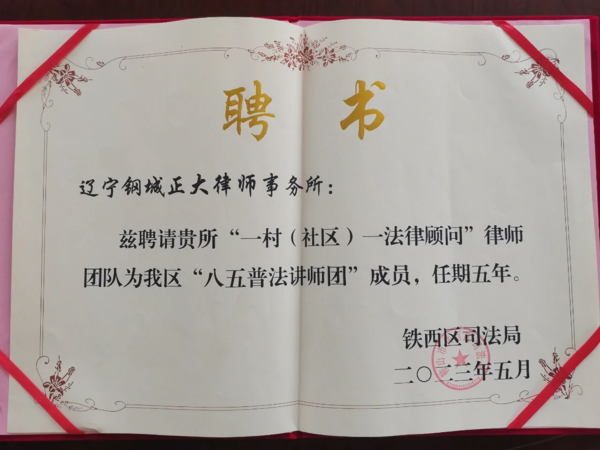 聘书
辽宁钢城正大律师事务所：
兹聘请贵所“一村（社区）一法律顾问”律师
团队为我区“八五普法讲师团”成员，任期五年。
铁西区司法局
二〇二三年五月